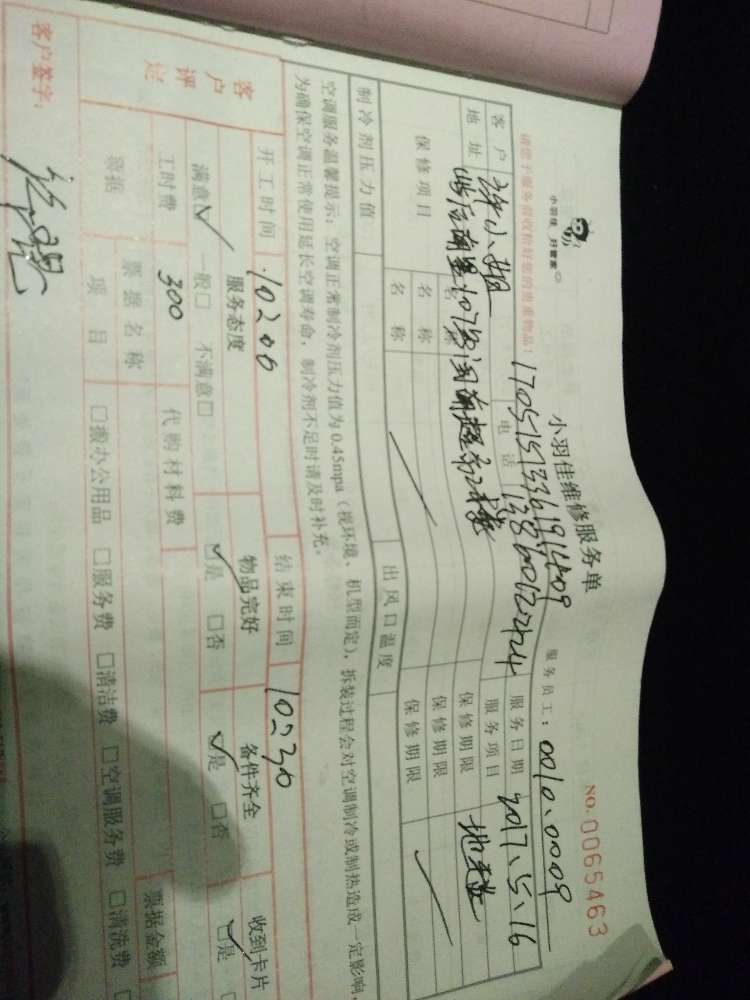 小羽佳 好管家
小羽佳维修服务单
NO. 0065463
请您于服务前收检好您的贵重物品!
17051513361914409
服务员工: 0010、0009
客户 许小姐 电话 13860122424 服务日期 2017、5、16
地址 服务项目
保修项目 名称 保修期限
名称 保修期限
名称 保修期限
制冷剂压力值 出风口温度
空调服务温馨提示: 空调正常制冷剂压力值为0.45mpa(视环境、机型而定), 拆装过程会对空调制冷或制热造成一定影响,
为确保空调正常使用延长空调寿命, 制冷剂不足时请及时补充。
开工时间 10:00 结束时间 10:30
客户评定 服务态度 物品完好 备件齐全 收到卡片
满意☑ 一般□ 不满意□ ☑是 □否 ☑是 □否 ☑是
工时费 300 代购材料费
票据 票据名称 票据金额
项目 □搬办公用品 □服务费 □清洁费 □空调服务费 □清洗费
客户签字: